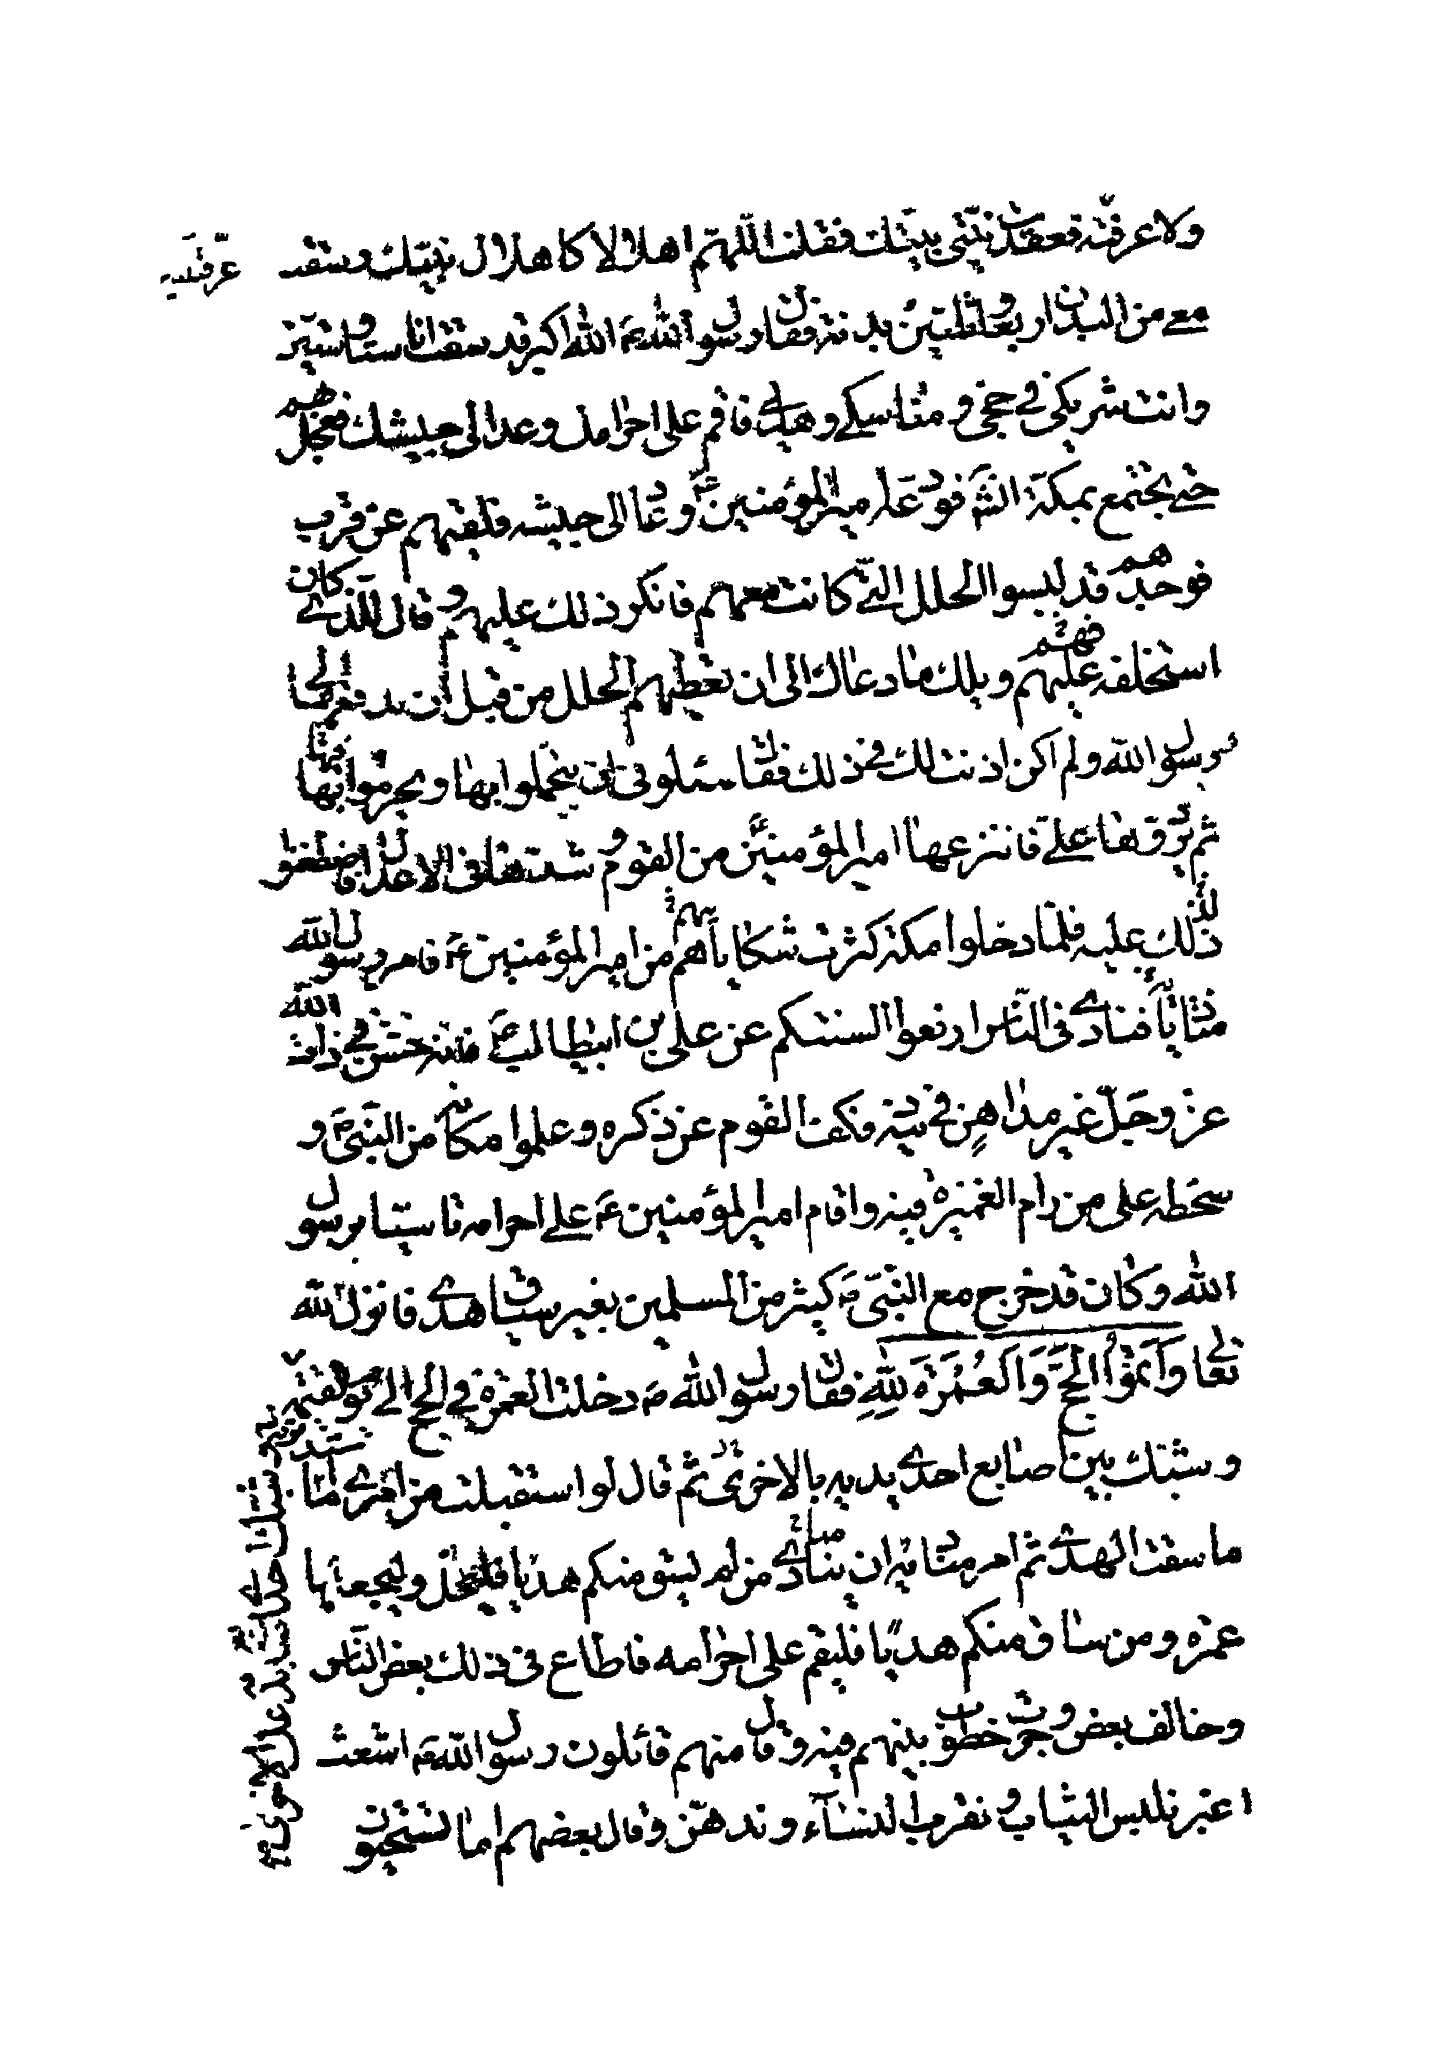 ولا عرفته فعقدت نيتي بنيتك فقلت اللهم اهلالا كاهلال نبيك وسقت
عرفنيه
معي من البدن اربعا وثلثين بدنة فقال رسول الله ص الله اكبر قد سقت انا ستا وستين
وانت شريكي في حجي و مناسكي وهديي فاقم على احرامك وعد الى جيشك فعجل بهم
حتى نجتمع بمكة انشاء فودعه امير المؤمنين ع وعاد الى جيشه فلقيهم عن قرب
فوجدهم قد لبسوا الحلل التي كانت معهم فانكر ذلك عليهم وقال للذي كان
استخلفه عليهم ويلك ما دعاك الى ان تعطيهم الحلل من قبل ان ندفعها الى
رسول الله ولم اكن اذنت لك في ذلك فقال سئلوني ان يتجملوا بها ويحرموا فيها
ثم يردونها علي فانتزعها امير المؤمنين من القوم وشدها في الاعدال فاضطغنوا
لذلك عليه فلما دخلوا مكة كثرت شكاياهم من امير المؤمنين ع فامر رسول الله
مناديا فنادى في الناس ارفعوا السنتكم عن علي بن ابيطالب ع فانه خشن في ذات الله
عز وجل غير مداهن في دينه فكف القوم عن ذكره وعلموا مكانه من النبي ص و
سخطه على من رام الغميزة فيه واقام امير المؤمنين ع على احرامه تاسيا برسول
الله وكان قد خرج مع النبي ص كثير من المسلمين بغير سياق هدي فانزل الله
تعالى وَاَتِمُّوا الحَجَّ وَالعُمْرَةَ لِلّٰهِ فقال رسول الله ص دخلت العمرة في الحج الى يوم القيمة
وشبك بين اصابع احدى يديه بالاخرى ثم قال لو استقبلت من امري ما استدبرته
ما سقت الهدي ثم امر مناديه ان ينادي من لم يسق منكم هديا فليحل وليجعلها
عمرة ومن ساق منكم هديا فليقم على احرامه فاطاع في ذلك بعض الناس
وخالف بعض وجرت خطوب بينهم فيه وقال منهم قائلون رسول الله ص اشعث
اغبر نلبس الثياب ونقرب النساء وندهن وقال بعضهم اما تستحيون